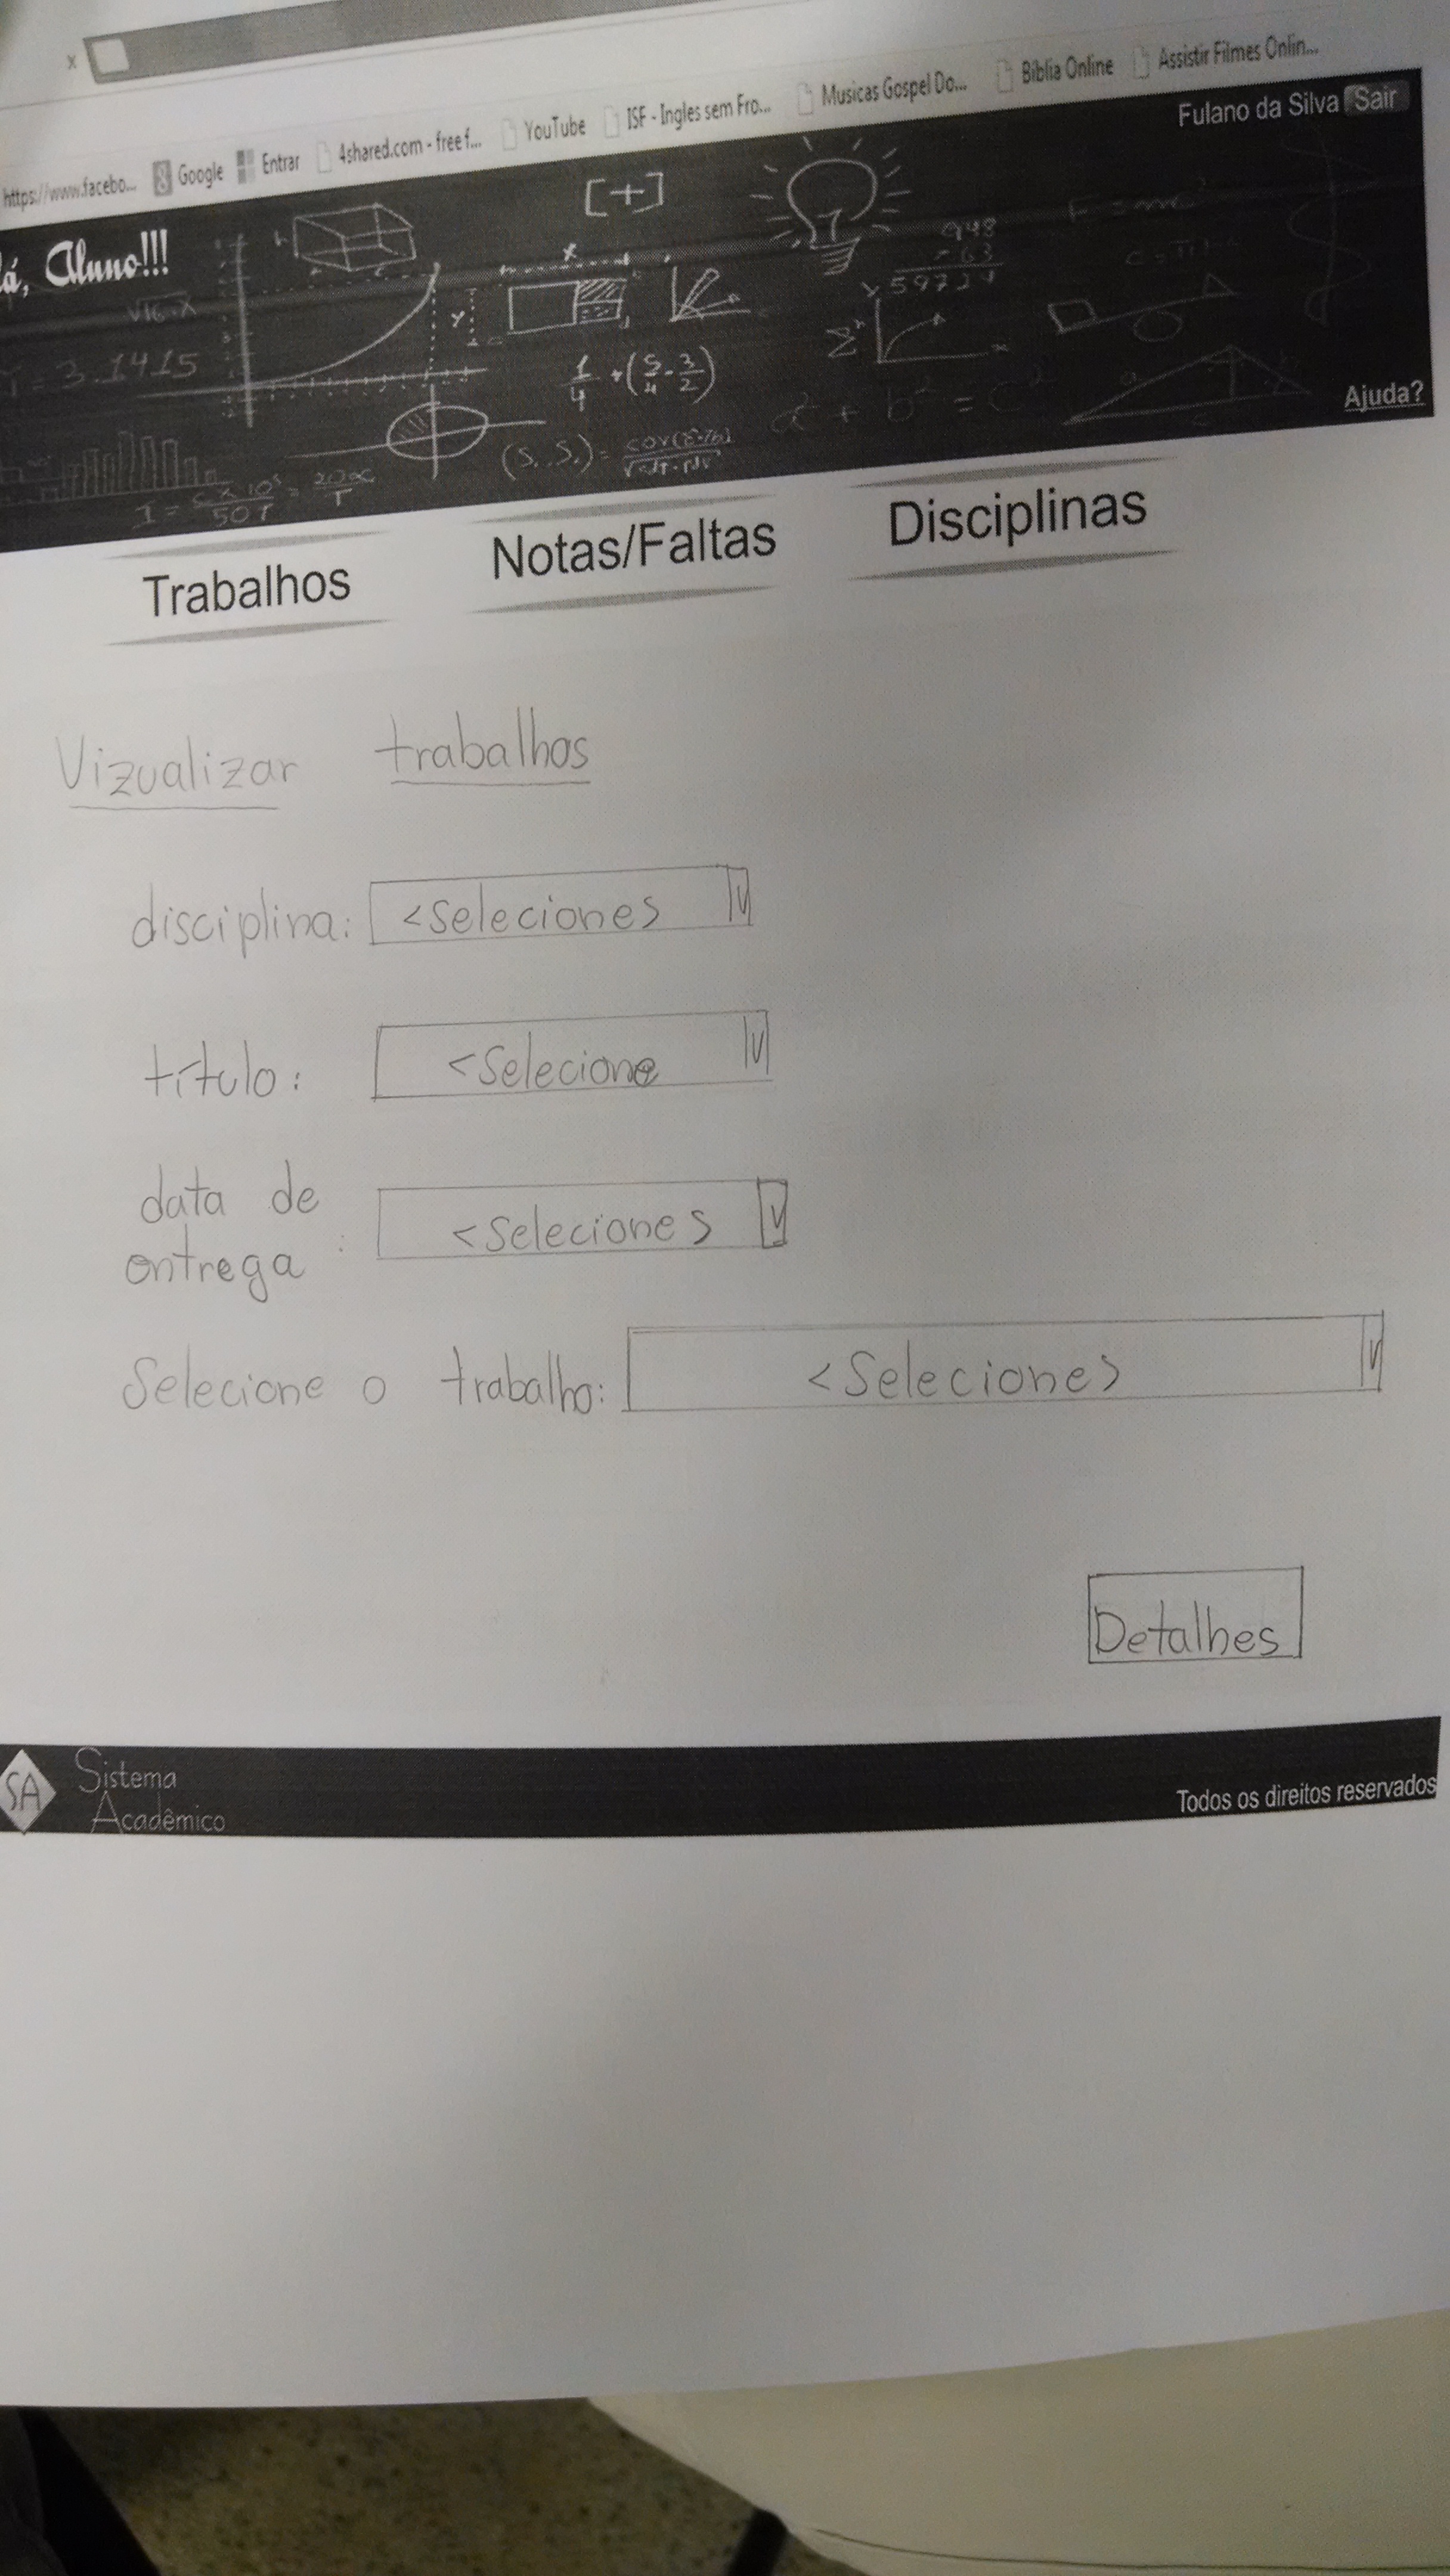 x
https://www.facebo... Google Entrar 4shared.com - free f... YouTube ISF - Ingles sem Fro... Musicas Gospel Do... Biblia Online Assistir Filmes Onlin...
Fulano da Silva Sair
lá, Aluno!!!
[+]
948
63
59724
√16-x
= 3.1415
x
y
1/4 + (5/4 - 3/2)
a² + b² = c²
Ajuda?
Trabalhos Notas/Faltas Disciplinas
Vizualizar trabalhos
disciplina: <Selecione>
título: <Selecione
data de
entrega : <Selecione>
Selecione o trabalho: <Selecione>
Detalhes
SA Sistema
Acadêmico
Todos os direitos reservados